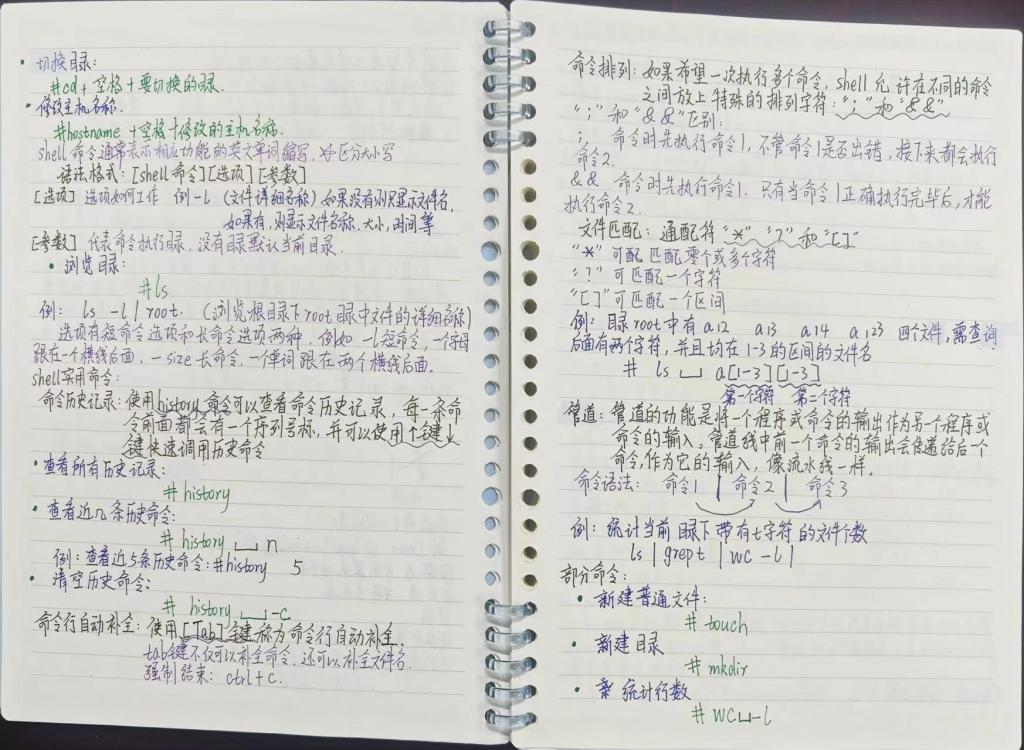 • 切换目录:
#cd + 空格 + 要切换的目录.
• 修改主机名称.
#hostname + 空格 + 修改的主机名称.
shell 命令通常表示相应功能的英文单词缩写, 区分大小写
语法格式: [shell 命令][选项][参数]
[选项] 选项如何工作 例 -l (文件详细名称) 如果没有则只显示文件名,
如果有, 则显示文件名称. 大小, 时间 等
[参数] 代表命令执行目录, 没有目录默认当前目录.
• 浏览目录:
#ls
例: ls -l / root. (浏览根目录下root目录中文件的详细名称)
选项有短命令选项和长命令选项两种, 例如 -l 短命令, 一个字母
跟在一个横线后面. --size 长命令, 一个单词跟在两个横线后面.
shell实用命令:
命令历史记录: 使用history命令可以查看命令历史记录, 每一条命
令前面都会有一个序列号标, 并可以使用个键↓
键快速调用历史命令
• 查看所有历史记录:
# history
• 查看近几条历史命令:
# history ␣ n
例: 查看近5条历史命令: #history 5
• 清空历史命令:
# history ␣ -c
命令行自动补全: 使用[Tab]键称为命令行自动补全.
tab键不仅可以补全命令, 还可以补全文件名.
强制结束: ctrl+c.
命令排列: 如果希望一次执行多个命令, shell 允许在不同的命令
之间放上特殊的排列字符: ";" 和 "&&"
";" 和 "&&" 区别:
; 命令时先执行命令1, 不管命令1是否出错, 接下来都会执行
命令2.
&& 命令时先执行命令1. 只有当命令1正确执行完毕后, 才能
执行命令2.
文件匹配: 通配符 "*" "?" 和 "[]"
"*" 可配 匹配零个或多个字符
"?" 可匹配一个字符
"[]" 可匹配一个区间
例: 目录root中有 a12 a13 a14 a123 四个文件, 需查询
后面有两个字符, 并且均在1-3的区间的文件名
# ls ␣ a[1-3][1-3]
第一个字符 第二个字符
管道: 管道的功能是将一个程序或命令的输出作为另一个程序或
命令的输入。管道线中前一个命令的输出会传递给后一个
命令, 作为它的输入, 像流水线一样.
命令语法: 命令1 | 命令2 | 命令3
例: 统计当前目录下带有t字符的文件个数
ls | grep t | wc -l |
部分命令:
• 新建普通文件:
# touch
• 新建目录
# mkdir
• 统计行数
# wc␣-l